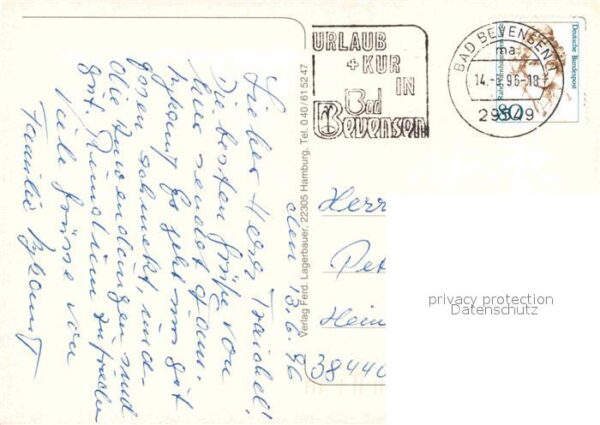 URLAUB
+ KUR
IN
Bad
Bevensen
BAD BEVENSEN 1
ma
14.-6.96-18
29549
Deutsche Bundespost
80
Verlag Ferd. Lagerbauer, 22305 Hamburg, Tel. 040/6 15 2 47
den 13.6.96
Lieber Herr Traichel!
Die besten Grüße von
hier sendet Fam.
Es geht uns gut
schmeckt, und
die Anwendungen sind
gut. Rundum zufrieden
Viele Grüsse von
Familie
Herr
Pet
Hein
38440
privacy protection
Datenschutz